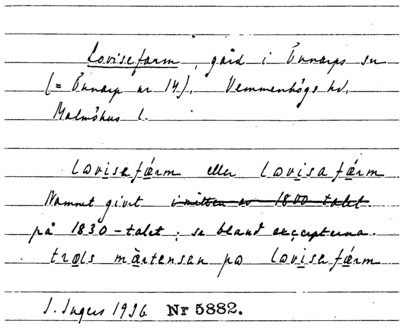 Lovisefarm, gård i Önnarps sn
(= Önnarp nr 14), Vemmenhögs hd,
Malmöhus l.
lovisafárm eller lovisafárm
Namnet givet i mitten av 1800 talet
på 1830-talet; se bland excerpterna.
trǫls mårtensan på lovisafárm
I. Ingers 1936 Nr 5882.